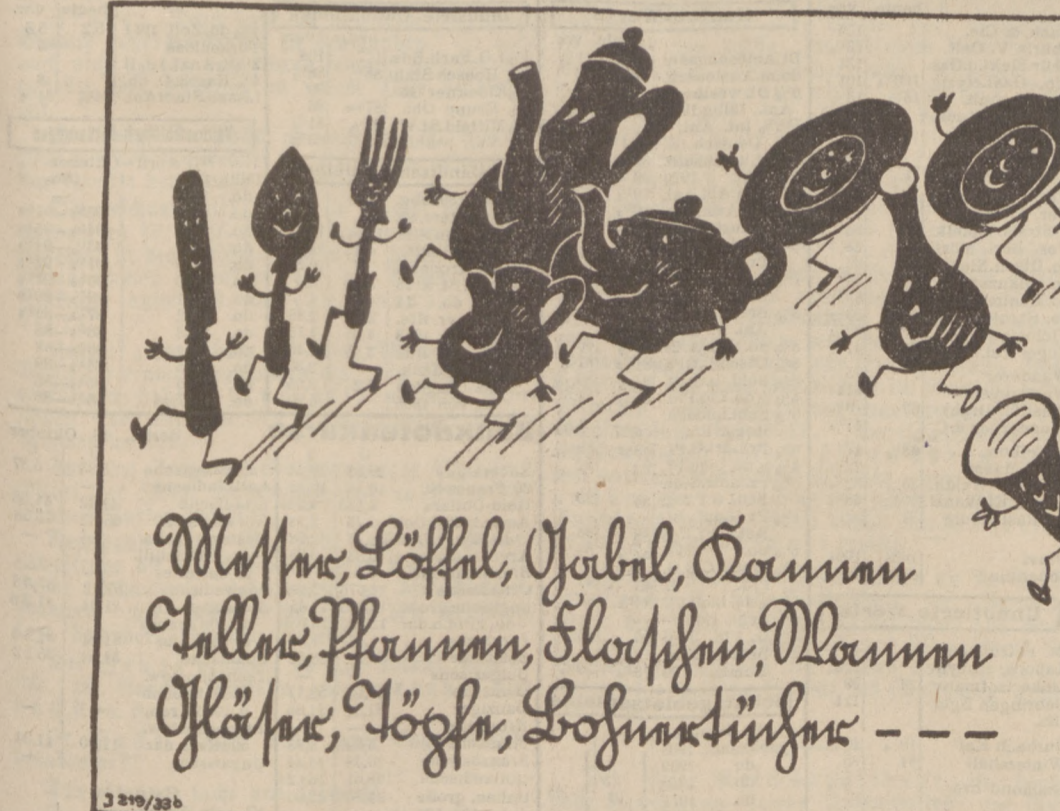 Messer, Löffel, Gabel, Kannen
Teller, Pfannen, Flaschen, Wannen
Gläser, Töpfe, Bohnertücher - - -
J 219/33b